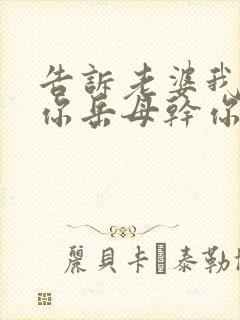 告訴老婆我
你岳母幹你
麗貝卡·泰勒